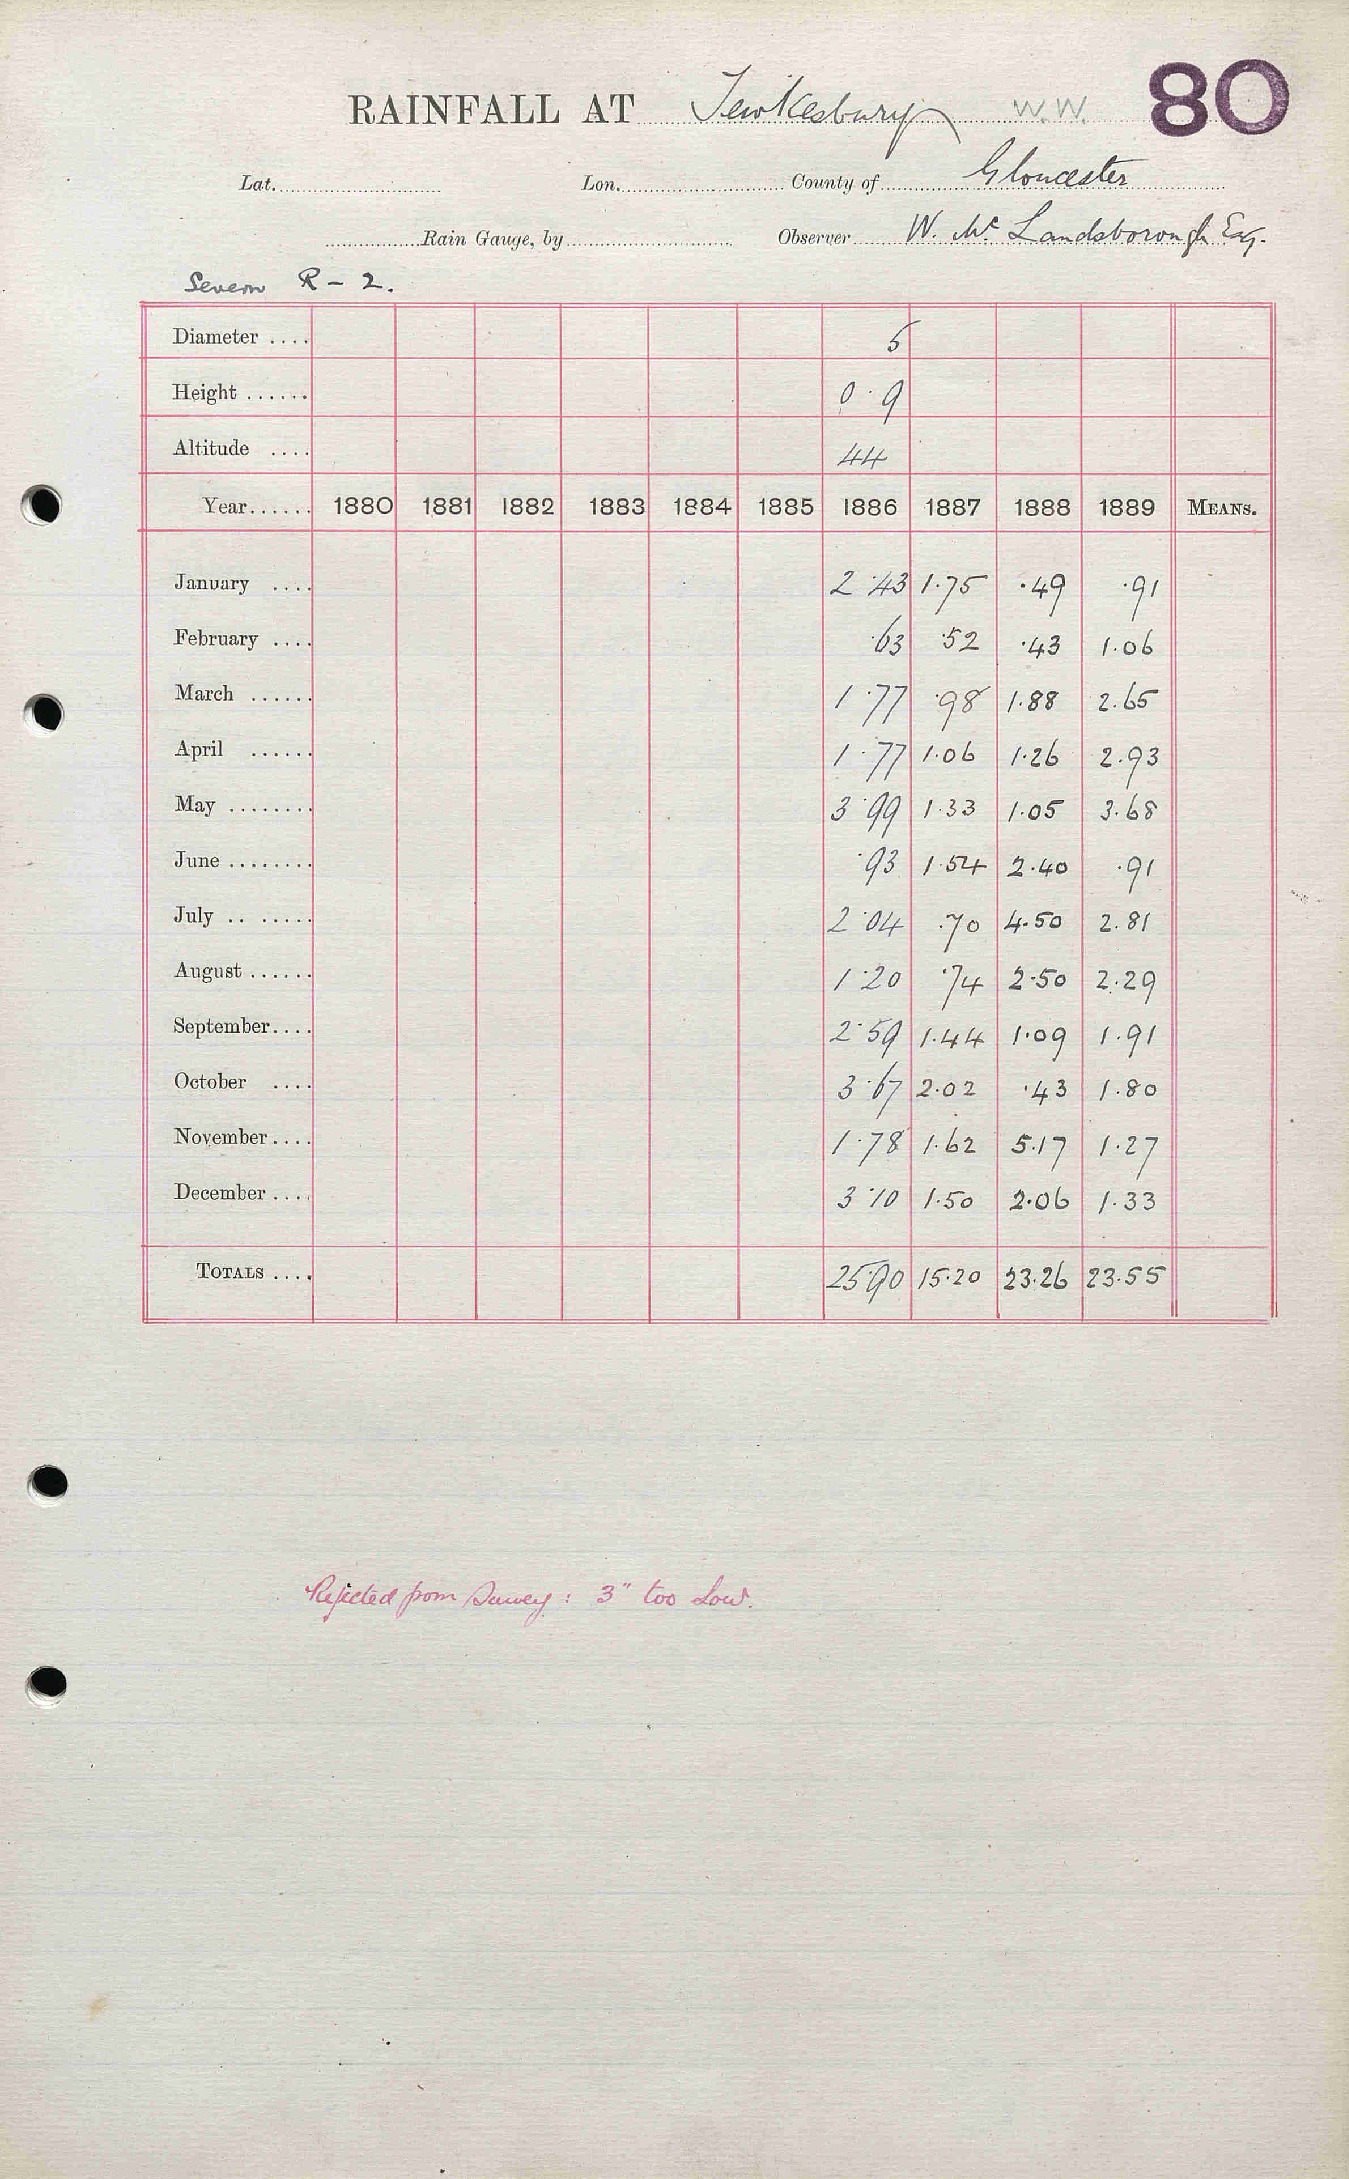 RAINFALL AT Tewkesbury W.W. 80
Lat. Lon. County of Gloucester
Rain Gauge, by Observer W. Mc Landsborough Esq.
Severn R - 2.
Diameter .... 5
Height ...... 0.9
Altitude .... 44
Year...... 1880 1881 1882 1883 1884 1885 1886 1887 1888 1889 MEANS.
January .... 2.43 1.75 .49 .91
February .... .63 .52 .43 1.06
March ...... 1.77 .98 1.88 2.65
April ...... 1.77 1.06 1.26 2.93
May ........ 3.99 1.33 1.05 3.68
June ........ .93 1.54 2.40 .91
July .. ..... 2.04 .70 4.50 2.81
August ...... 1.20 .74 2.50 2.29
September.... 2.59 1.44 1.09 1.91
October .... 3.67 2.02 .43 1.80
November.... 1.78 1.62 5.17 1.27
December.... 3.10 1.50 2.06 1.33
TOTALS .... 25.90 15.20 23.26 23.55
Rejected from Survey : 3" too Low.